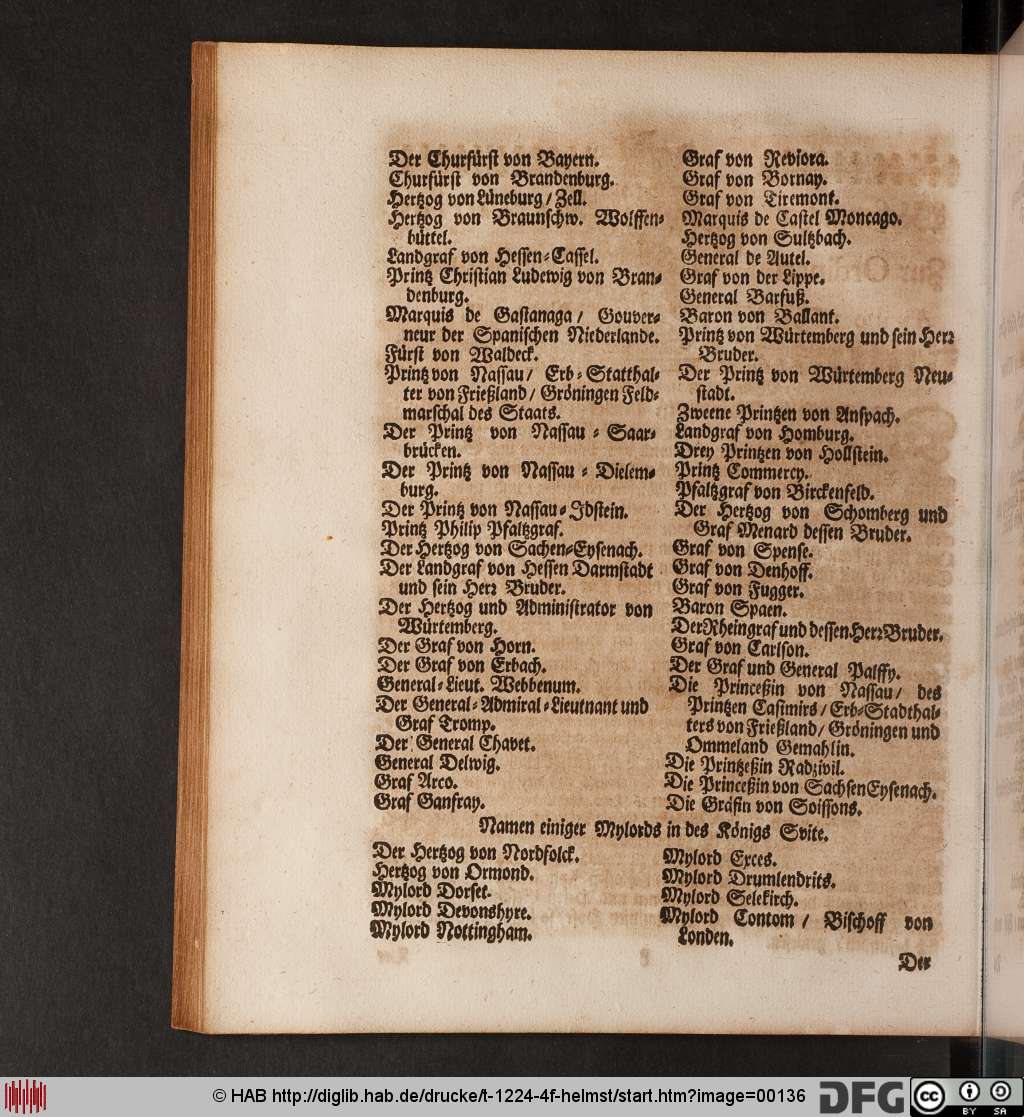 Der Churfürst von Bayern.
Churfürst von Brandenburg.
Hertzog von Lüneburg / Zell.
Hertzog von Braunschw. Wolffen-
büttel.
Landgraf von Hessen-Cassel.
Printz Christian Ludewig von Bran-
denburg.
Marquis de Gastanaga / Gouver-
neur der Spanischen Niederlande.
Fürst von Waldeck.
Printz von Nassau / Erb-Statthal-
ter von Frießland / Gröningen Feld-
marschal des Staats.
Der Printz von Nassau-Saar-
brücken.
Der Printz von Nassau-Dielem-
burg.
Der Printz von Nassau-Idstein.
Printz Philip Pfaltzgraf.
Der Hertzog von Sachen-Eysenach.
Der Landgraf von Hessen Darmstadt
und sein Herr Bruder.
Der Hertzog und Administrator von
Würtemberg.
Der Graf von Horn.
Der Graf von Erbach.
General-Lieut. Webbenum.
Der General-Admiral-Lieutnant und
Graf Tromp.
Der General Chavet.
General Delwig.
Graf Arco.
Graf Ganfray.
Graf von Revjora.
Graf von Bornay.
Graf von Tiremont.
Marquis de Castel Moncago.
Hertzog von Sultzbach.
General de Autel.
Graf von der Lippe.
General Barfuß.
Baron von Ballant.
Printz von Würtemberg und sein Herr
Bruder.
Der Printz von Würtemberg Neu-
stadt.
Zweene Printzen von Anspach.
Landgraf von Homburg.
Drey Printzen von Hollstein.
Printz Commercy.
Pfaltzgraf von Birckenfeld.
Der Hertzog von Schomberg und
Graf Menard dessen Bruder.
Graf von Spense.
Graf von Denhoff.
Graf von Fugger.
Baron Spaen.
Der Rheingraf und dessen Herr Bruder.
Graf von Carlson.
Der Graf und General Palffy.
Die Princeßin von Nassau / des
Printzen Casimirs / Erb-Stadthal-
ters von Frießland / Gröningen und
Ommeland Gemahlin.
Die Printzeßin Radzivil.
Die Princeßin von Sachsen Eysenach.
Die Gräfin von Soissons.
Namen einiger Mylords in des Königs Svite.
Der Hertzog von Nordfolck.
Hertzog von Ormond.
Mylord Dorset.
Mylord Devonshyre.
Mylord Nottingham.
Mylord Exces.
Mylord Drumlendrits.
Mylord Selekirch.
Mylord Contom / Bischoff von
Londen.
Der
© HAB http://diglib.hab.de/drucke/t-1224-4f-helmst/start.htm?image=00136
DFG
cc
BY SA